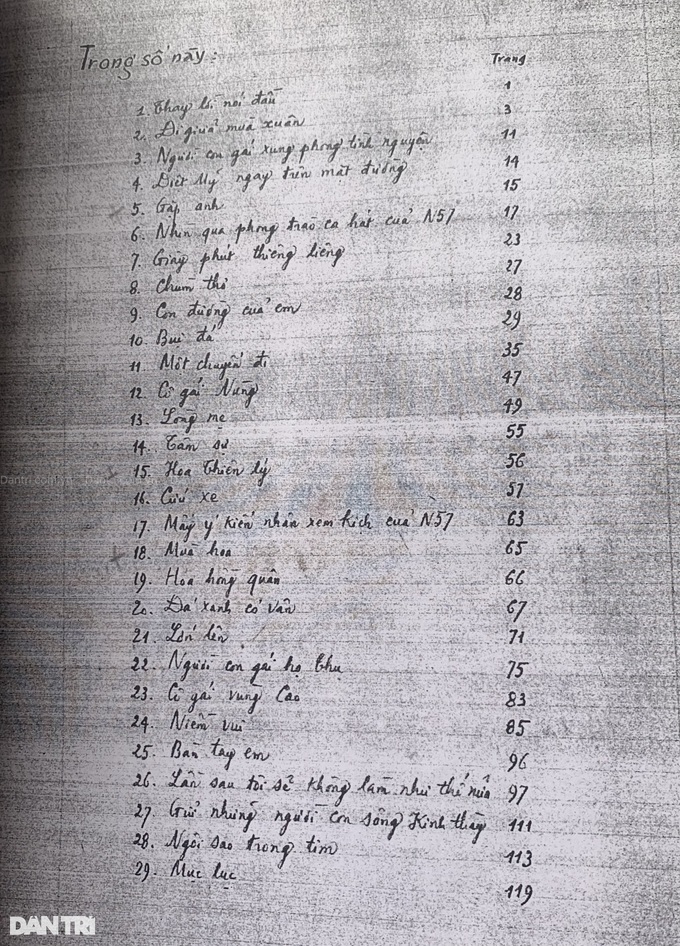 Trong số này: Trang
1. Thay lời nói đầu 1
2. Đi giữa mùa xuân 3
3. Người con gái xung phong tình nguyện 11
4. Diệt Mỹ ngay trên mặt đường 14
5. Gặp anh 15
6. Nhìn qua phong trào ca hát của N57 17
7. Giây phút thiêng liêng 23
8. Chùm thơ 27
9. Con đường của em 28
10. Bụi đá 29
11. Một chuyến đi 35
12. Cô gái Nùng 47
13. Lòng mẹ 49
14. Tâm sự 55
15. Hoa thiên lý 56
16. Cứu xe 57
17. Mấy ý kiến nhân xem kịch của N57 63
18. Mùa hoa 65
19. Hoa hồng quân 66
20. Đá xanh có vân 67
21. Lớn lên 71
22. Người con gái họ Thụ 75
23. Cô gái vùng Cao 83
24. Niềm vui 85
25. Bàn tay em 96
26. Lần sau tôi sẽ không làm như thế nữa 97
27. Giữ những người con sông Kinh thầy 111
28. Ngôi sao trong tim 113
29. Mục lục 119
Dantri.com.vn
DÂN TRÍ